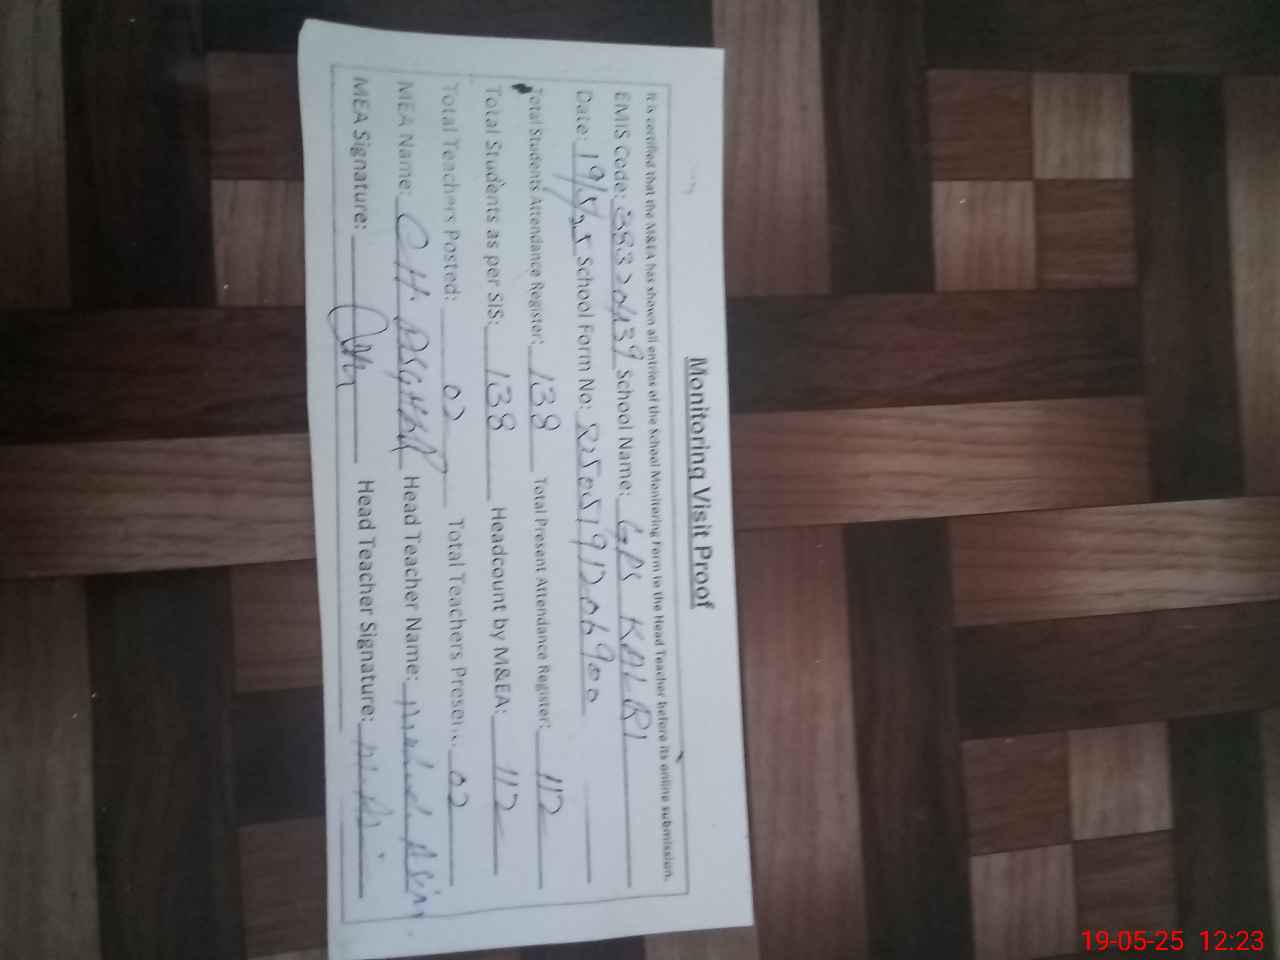 Monitoring Visit Proof
It is certified that the M&EA has shown all entries of the School Monitoring Form to the Head Teacher before its online submission.
EMIS Code: School Name: GPS KALRI
Date: 19/5/25 School Form No:
Total Students Attendance Register: 138 Total Present Attendance Register: 112
Total Students as per SIS: 138 Headcount by M&EA: 112
Total Teachers Posted: 02 Total Teachers Present: 02
MEA Name: CH. ASGHAR Head Teacher Name:
MEA Signature: Head Teacher Signature:
19-05-25 12:23